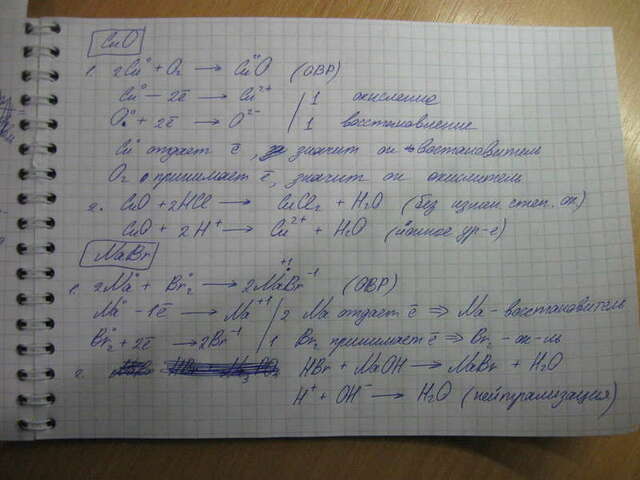 CuO
1. 2Cu⁰ + O₂ → Cu⁺²O (ОВР)
Cu⁰ - 2ē → Cu²⁺ | 1 окисление
O⁰ + 2ē → O²⁻ | 1 восстановление
Cu отдает ē, значит он востановитель
O₂ принимает ē, значит он окислитель
2. CuO + 2HCl → CuCl₂ + H₂O (без измен степ. ок)
CuO + 2H⁺ → Cu²⁺ + H₂O (ионное ур-е)
NaBr
1. 2Na⁰ + Br₂⁰ → 2Na⁺¹Br⁻¹ (ОВР)
Na⁰ - 1ē → Na⁺¹ | 2 Na отдает ē ⇒ Na - восстановитель
Br₂⁰ + 2ē → 2Br⁻¹ | 1 Br₂ принимает ē ⇒ Br₂ - ок-ль
2. HBr + NaOH → NaBr + H₂O
H⁺ + OH⁻ → H₂O (нейтрализация)